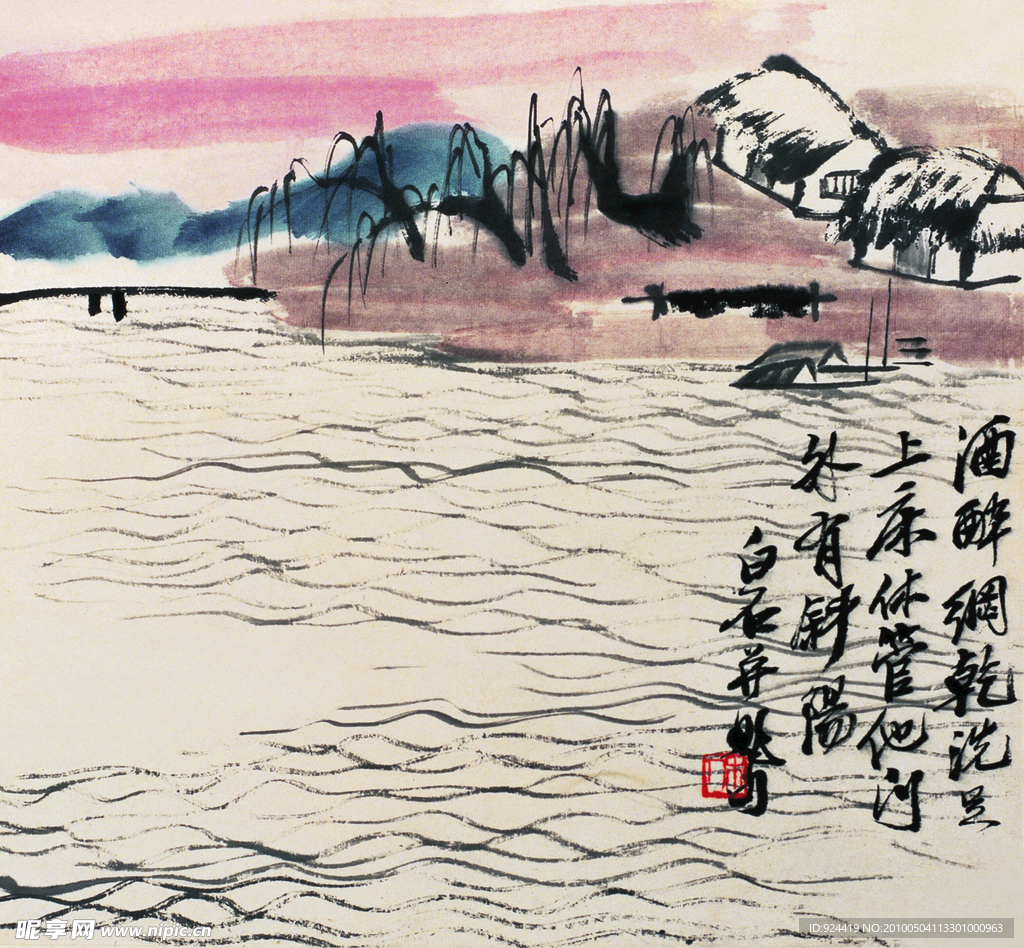 酒醉網乾洗足
上床休管他門
外有斜陽
白石并題句
昵享网 www.nipic.cn
ID:924419 NO:20100504113301000963